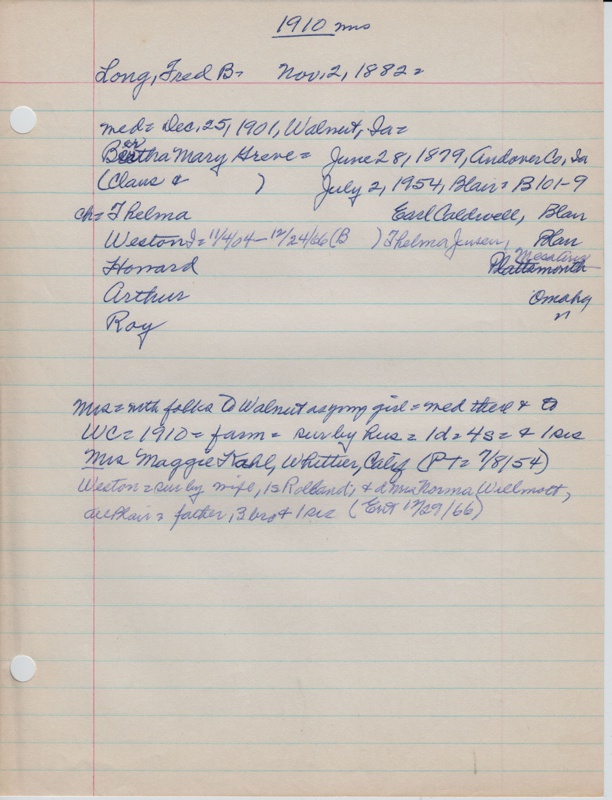 1910 mrs
Long, Fred B= Nov. 2, 1882=
med= Dec. 25, 1901, Walnut, Ia=
Bertha Mary Greve= June 28, 1879, Andover Co, Ia
(Claus & ) July 2, 1954, Blair= B101-9
ch= Thelma Earl Caldwell, Blair
Weston I= 11/4/04-12/24/66 (B ) Thelma Jensen, Blair
Howard Plattsmouth
Arthur Omaha
Roy "
Mrs= with folks to Walnut as young girl= med there & to
WC= 1910= farm= sur by hus= 1d= 4s= & 1sis
Mrs Maggie Kahl, Whittier, Calif (PT= 7/8/54)
Weston= sur by wife, 1s Rolland; & d Mrs Norma Willmott,
all Blair= father, 3 bro & 1 sis (Ent 12/29/66)